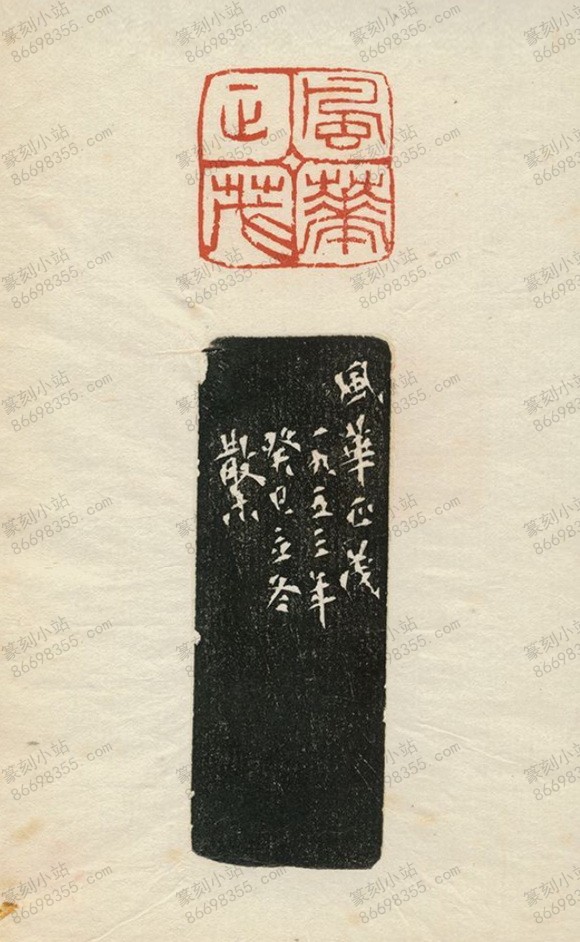 風華正茂
風華正茂
一九五三年
癸巳立冬
散木
篆刻小站
86698355.com